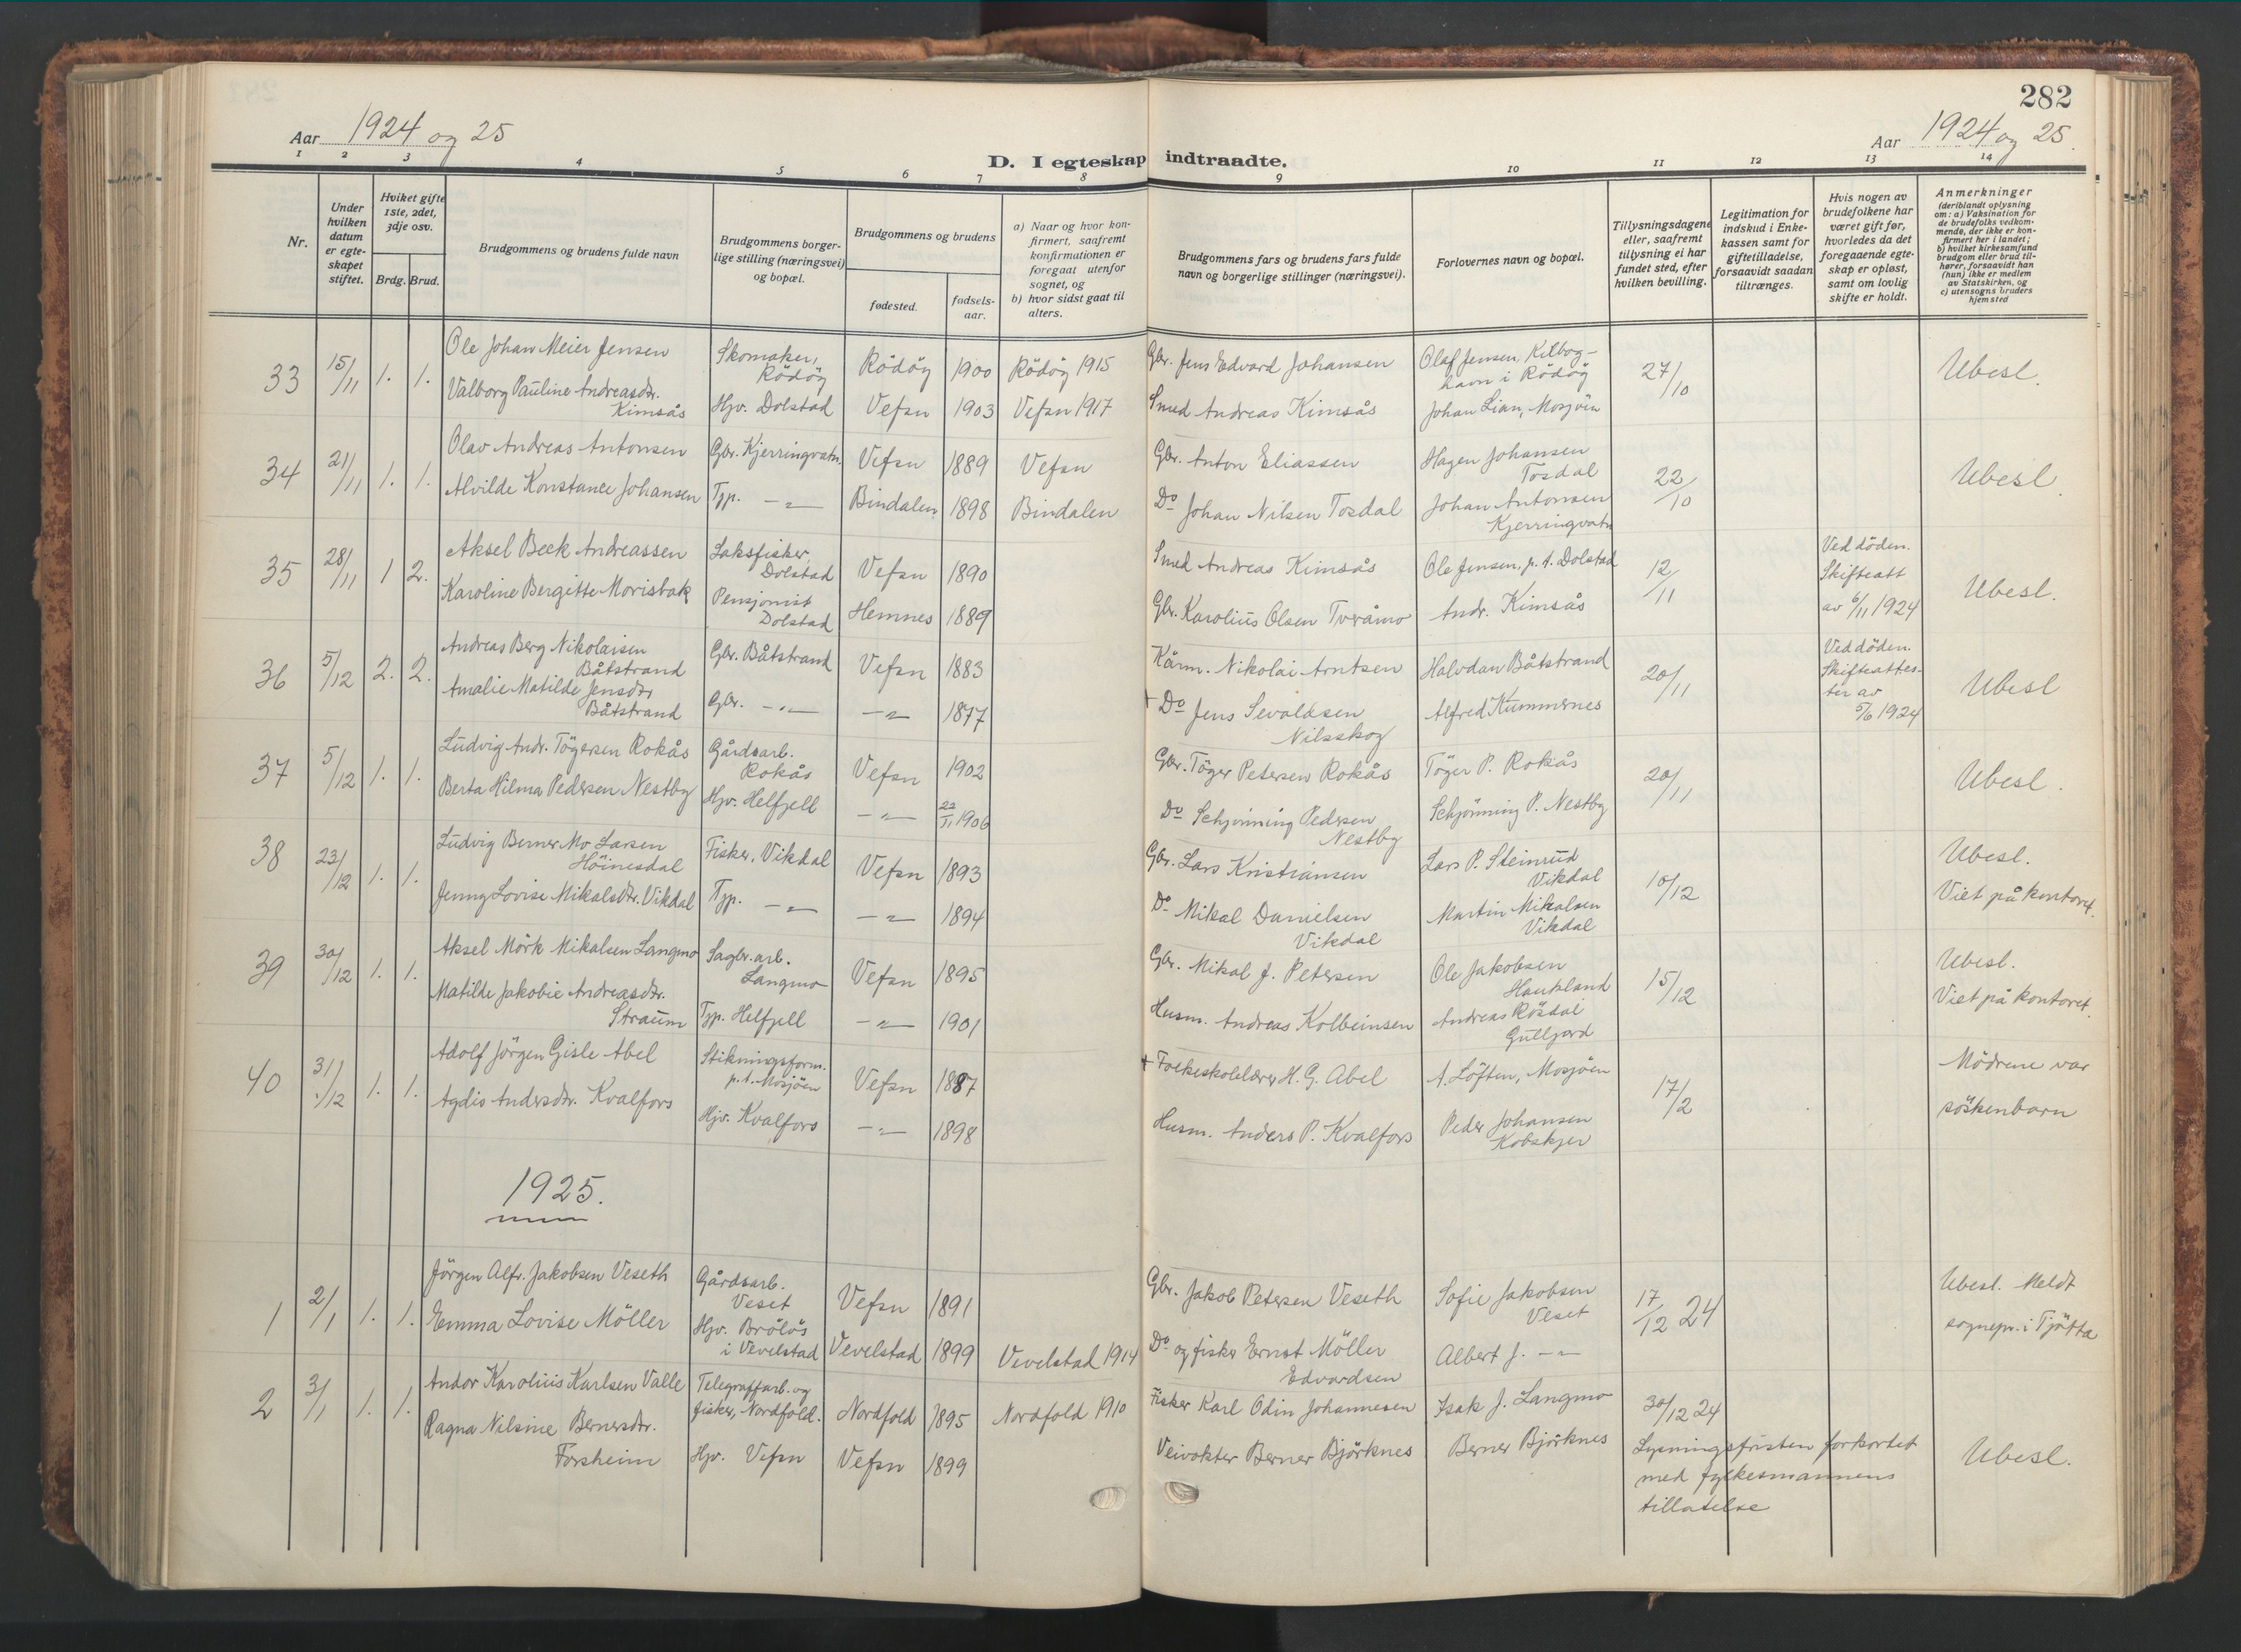 282
Aar 1924 og 25
Aar 1924 og 25.
D. I egteskap indtraadte.
1 2 3 4 5 6 7 8 9 10 11 12 13 14
Nr.
Under hvilken datum er egteskapet stiftet.
Hvilket gifte 1ste, 2det, 3dje osv.
Brdg. Brud.
Brudgommens og brudens fulde navn
Brudgommens borgerlige stilling (næringsvei) og bopæl.
Brudgommens og brudens
fødested.
fødselsaar.
a) Naar og hvor konfirmert, saafremt konfirmationen er foregaat utenfor sognet, og
b) hvor sidst gaat til alters.
Brudgommens fars og brudens fars fulde navn og borgerlige stillinger (næringsvei).
Forlovernes navn og bopæl.
Tillysningsdagene eller, saafremt tillysning ei har fundet sted, efter hvilken bevilling.
Legitimation for indskud i Enkekassen samt for giftetilladelse, forsaavidt saadan tiltrænges.
Hvis nogen av brudefolkene har været gift før, hvorledes da det foregaaende egteskap er opløst, samt om lovlig skifte er holdt.
Anmerkninger
(deriblandt oplysning om: a) Vaksination for de brudefolks vedkommende, der ikke er konfirmert her i landet; b) hvilket kirkesamfund brudgom eller brud tilhører, forsaavidt han (hun) ikke er medlem av Statskirken, og c) utensogns bruders hjemsted
33 15/11 1. 1. Ole Johan Meier Jensen Skomaker, Rödöy Rödöy 1900 Rödöy 1915 Gbr. Jens Edvard Johansen Olaf Jensen, Kilboghavn i Rödöy 27/10 Ubesl.
Valborg Pauline Andreasdtr. Kimsås Hjv. Dolstad Vefsn 1903 Vefsn 1917 Smed Andreas Kimsås Johan Lian, Mosjöen
34 21/11 1. 1. Olav Andreas Antonsen Gbr. Kjerringvatn. Vefsn 1889 Vefsn Gbr. Anton Eliassen Hagen Johansen Tosdal 22/10 Ubesl.
Alvilde Konstance Johansen Tjp. —"— Bindalen 1898 Bindalen Do Johan Nilsen Tosdal Johan Antonsen Kjerringvatn
35 28/11 1 2. Aksel Beck Andreassen Laksfisker, Dolstad Vefsn 1890 Smed Andreas Kimsås Ole Jensen, p. t. Dolstad 12/11 Ved döden. Skifteatt av 6/11 1924 Ubesl.
Karoline Bergitte Morisbak Pensjonist Dolstad Hemnes 1889 Gbr. Karolius Olsen Tveråmo Andr. Kimsås
36 5/12 2. 2. Andreas Berg Nikolaisen Båtstrand Gbr. Båtstrand Vefsn 1883 Kårm. Nikolai Arntsen Halvdan Båtstrand 20/11 Ved döden. Skifteattester av 5/6 1924 Ubesl
Amalie Matilde Jensdtr Båtstrand Gbr. —"— —"— 1877 + Do Jens Sevaldsen Nilsskog Alfred Kummernes
37 5/12 1. 1. Ludvig Andr. Tögersen Rokås Gårdsarb. Rokås Vefsn 1902 Gbr. Töger Petersen Rokås Töger P. Rokås 20/11 Ubesl.
Berta Hilma Pedersen Nestby Hjv. Helfjell —"— 22/11 1906 Do Schjönning Pedersen Nestby Schjönning P. Nestby
38 23/12 1. 1. Ludvig Berner Mo Larsen Höinesdal Fisker, Vikdal Vefsn 1893 Gbr. Lars Kristiansen Lars P. Steinrud Vikdal 10/12 Ubesl.
Jenny Lovise Mikalsdtr. Vikdal Tjp. —"— —"— 1894 Do Mikal Danielsen Vikdal Martin Mikalsen Vikdal Viet på kontoret.
39 30/12 1. 1. Aksel Mörk Mikalsen Langmo Sagbr.arb. Langmo Vefsn 1895 Gbr. Mikal J. Petersen Ole Jakobsen Haukland 15/12 Ubesl.
Matilde Jakobie Andreasdtr. Straum Tjp. Helfjell —"— 1901 Husm. Andreas Kolbeinsen Andreas Rösdal Gulljord Viet på kontoret.
40 31/12 1. 1. Adolf Jörgen Gisle Abel Stikningsform. p.t. Mosjöen Vefsn 1887 + Folkeskolelærer H. G. Abel A. Löften, Mosjöen 17/2 Mödrene var
Agdis Andersdtr. Kvalfors Hjv. Kvalfors —"— 1898 Husm. Anders P. Kvalfors Peder Johansen Kobskjer söskenbarn
1925.
1 2/1 1. 1. Jörgen Alfr. Jakobsen Veseth Gårdsarb. Veset Vefsn 1891 Gbr. Jakob Petersen Veseth Sofie Jakobsen Veset 17/12 24 Ubesl. Meldt
Emma Lovise Möller Hjv. Brölös i Vevelstad Vevelstad 1899 Vevelstad 1914 Do og fisker Ernst Möller Edvardsen Albert J. —"— sognepr. i Tjötta
2 3/1 1. 1. Andor Karolius Karlsen Valle Telegrafarb. og fisker, Nordfold. Nordfold 1895 Nordfold 1910 Fisker Karl Odin Johannesen Isak J. Langmo 30/12 24
Ragna Nilsine Bernersdtr. Forsheim Hjv. Vefsn Vefsn 1899 Veivokter Berner Björknes Berner Björknes Lysningsfristen forkortet med fylkesmannens tillatelse Ubesl.